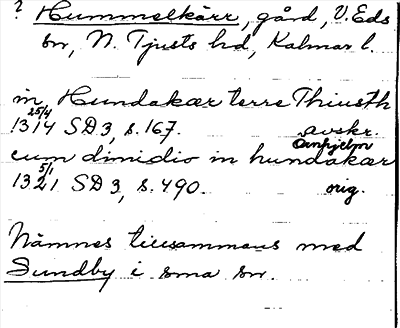 ? Hummelkärr, gård, V. Eds
sn, N. Tjusts hd, Kalmar l.
in Hundakær terre Thiusth
1314 25/4 SD 3, s. 167. avskr.
cum dimidio in hundakær
1321 5/1 SD 3, s. 490. orig.
Nämnes tillsammans med
Sundby i sma sn.